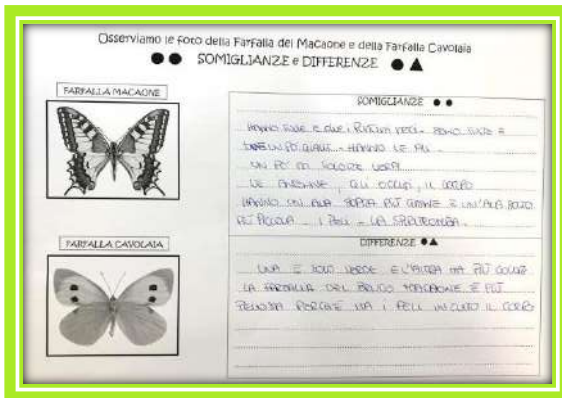 Osserviamo le foto della Farfalla del Macaone e della Farfalla Cavolaia
SOMIGLIANZE e DIFFERENZE
FARFALLA MACAONE
SOMIGLIANZE
HANNO TUTTE E DUE I PUNTINI NERI - SONO TUTTE E
DUE UN PO' GIALLE - HANNO LE ALI
UN PO' DI COLORE
LE ANTENNE, GLI OCCHI, IL CORPO
HANNO UN ALA SOPRA PIÙ GRANDE E UN'ALA SOTTO
PIÙ PICCOLA - I PELI - LA SPIRITROMBA
FARFALLA CAVOLAIA
DIFFERENZE
UNA È SOLO VERDE E L'ALTRA HA PIÙ COLORI
LA FARFALLA DEL BRUCO MACAONE È PIÙ
PELOSA PERCHÉ HA I PELI IN TUTTO IL CORPO